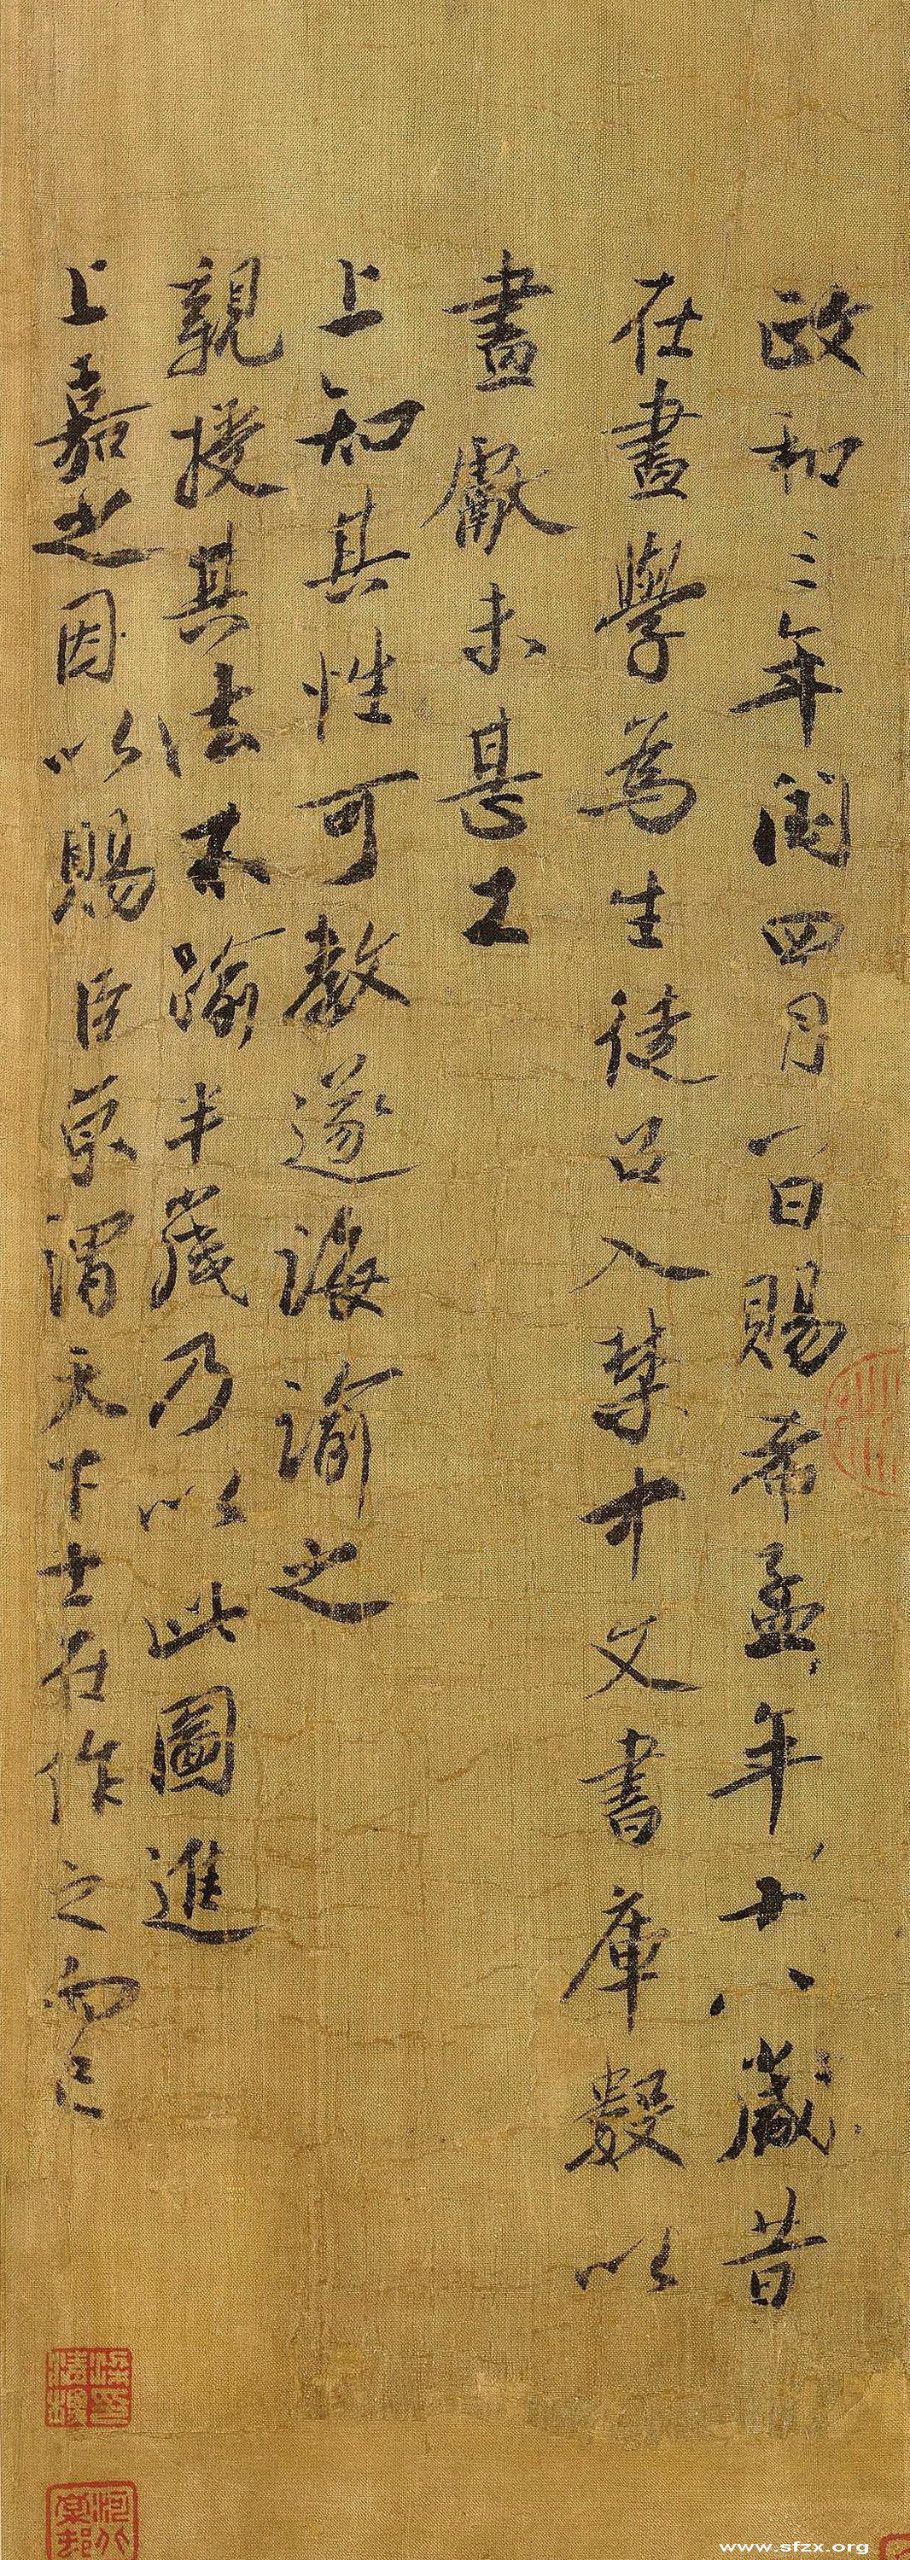 政和三年閏四月一日賜希孟年十八歲昔
在畫學為生徒召入禁中文書庫數以
畫獻未甚工
上知其性可教遂誨諭之
親授其法不踰半歲乃以此圖進
上嘉之因以賜臣京謂天下士在作之而已
www.sfzx.org